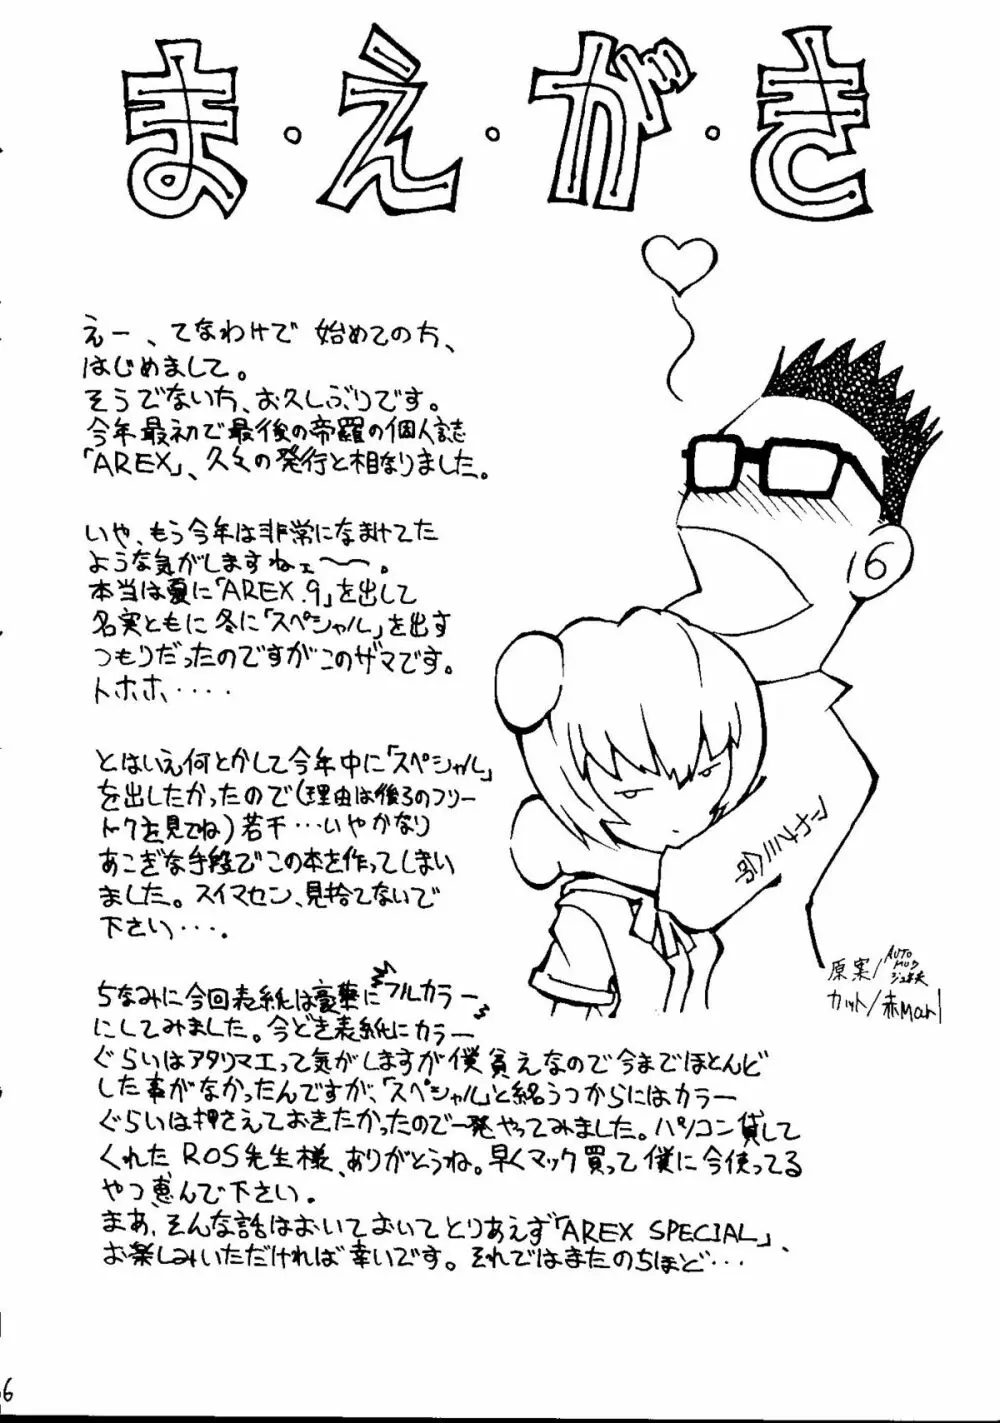 ま・え・が・き
えー、てなわけで 始めてのち、
はじめまして。
そうでないち、お久しぶりです。
今年最初で最後の帝羅の個人誌
「AREX」、久々の発行と相なりました。
いや、もう今年は非常になまけてた
ような気がしますねェ〜〜。
本当は夏に「AREX.9」を出して
名実ともに冬に「スペシャル」を出す
つもりだったのですがこのザマです。
トホホ、‥‥
とはいえ何とかして今年中に「スペシャル」
を出したかったので(理由は後ろのフリー
トークを見てね)若干…いやかなり
あこぎな手段でこの本を作ってしまい
ました。スイマセン、見捨てないで
下さい‥‥。
ちなみに今回表紙は豪華にフルカラー
にしてみました。今どき表紙にカラー
ぐらいはアタリマエって気がしますが僕貧えなので今までほとんど
した事がなかったんですが、「スペシャル」と銘うつからにはカラー
ぐらいは押さえておきたかったので一発やってみました。パソコン貸して
くれたROS先生様、ありがとうね。早くマック買って僕に今使ってる
やつ恵んで下さい。
まあ、そんな話はおいておいてとりあえず「AREX SPECIAL」、
お楽しみいただければ幸いです。それではまたのちほど…
原案/AUTO
カット/赤Marl
6